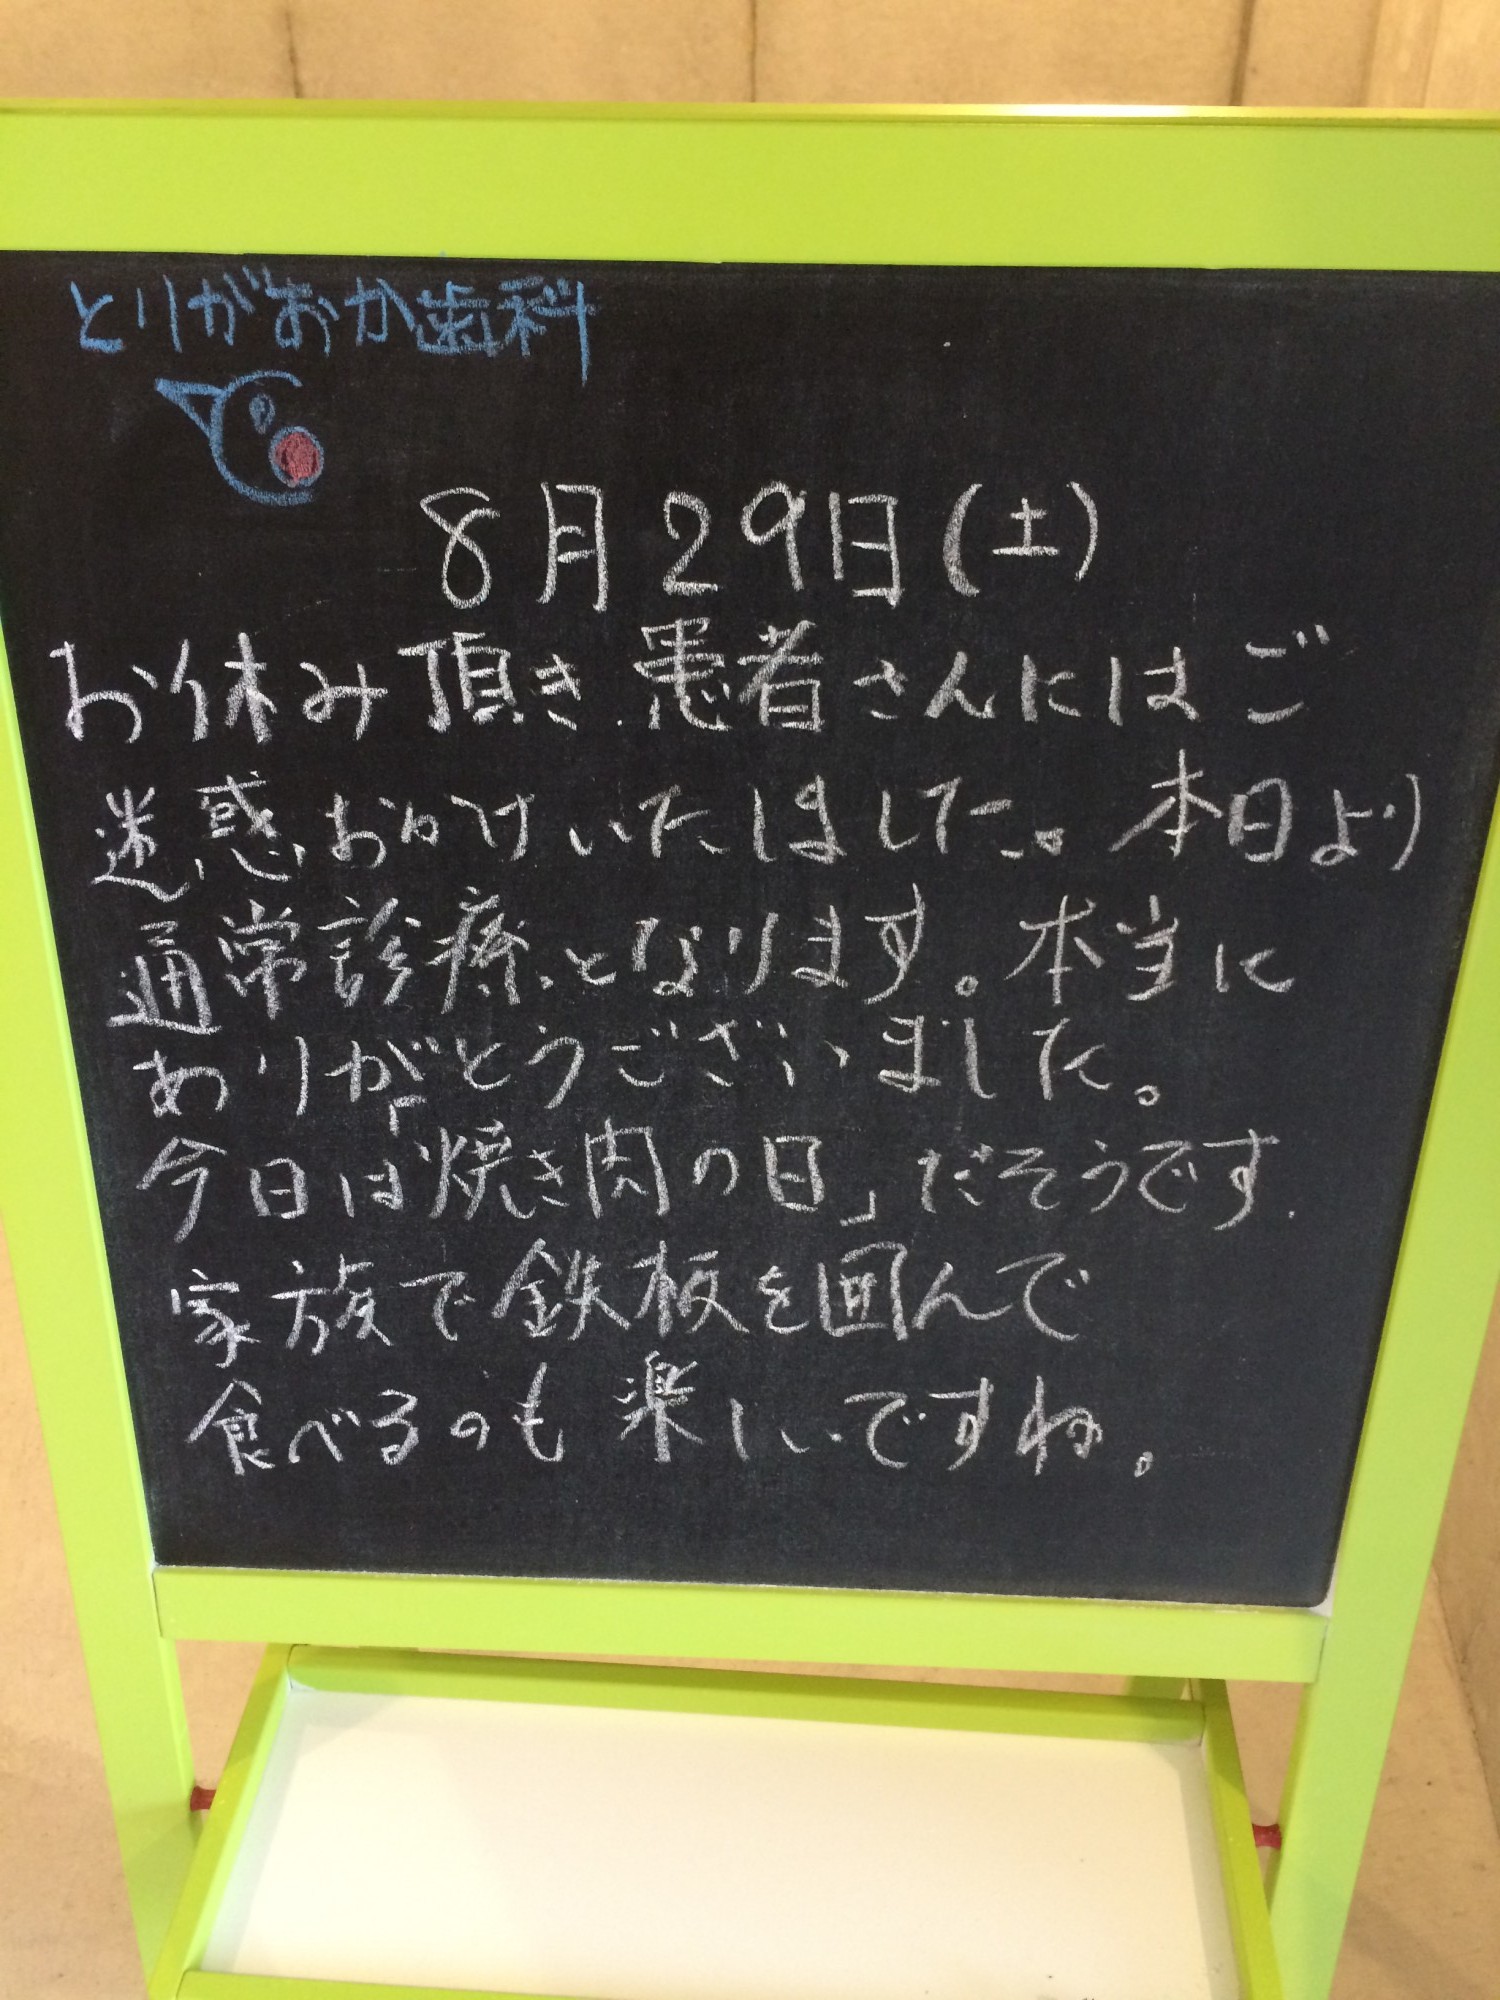 とりがおか歯科
8月29日(土)
お休み頂き患者さんにはご
迷惑おかけいたしました。本日より
通常診療となります。本当に
ありがとうございました。
今日は「焼き肉の日」だそうです.
家族で鉄板を囲んで
食べるのも楽しいですね。